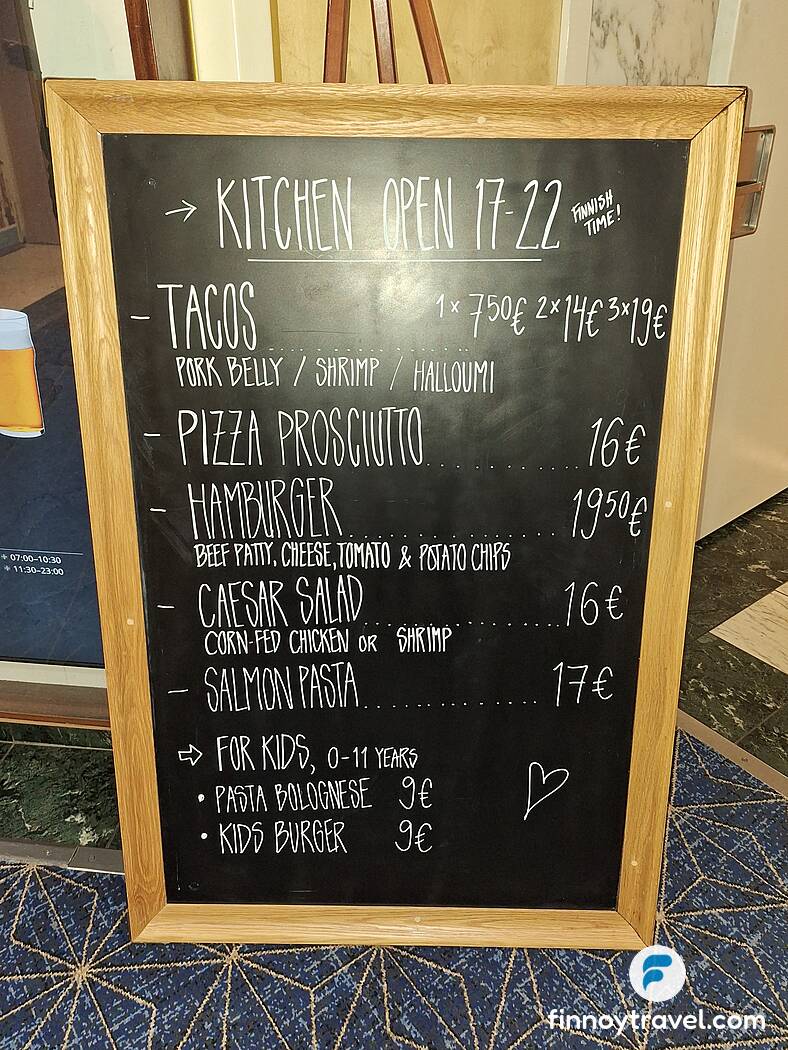 → KITCHEN OPEN 17-22 FINNISH TIME!
- TACOS ........ 1x 750€ 2x14€ 3x19€
PORK BELLY / SHRIMP / HALLOUMI
- PIZZA PROSCIUTTO ........ 16€
- HAMBURGER ........ 1950€
BEEF PATTY, CHEESE, TOMATO & POTATO CHIPS
- CAESAR SALAD ........ 16€
CORN-FED CHICKEN OR SHRIMP
- SALMON PASTA ........ 17€
⇨ FOR KIDS, 0-11 YEARS
• PASTA BOLOGNESE 9€
• KIDS BURGER 9€
07:00–10:30
11:30–23:00
finnoytravel.com